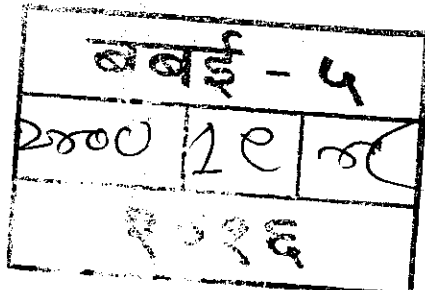 बबई - ५
२४०० १९ ४८
२०१६